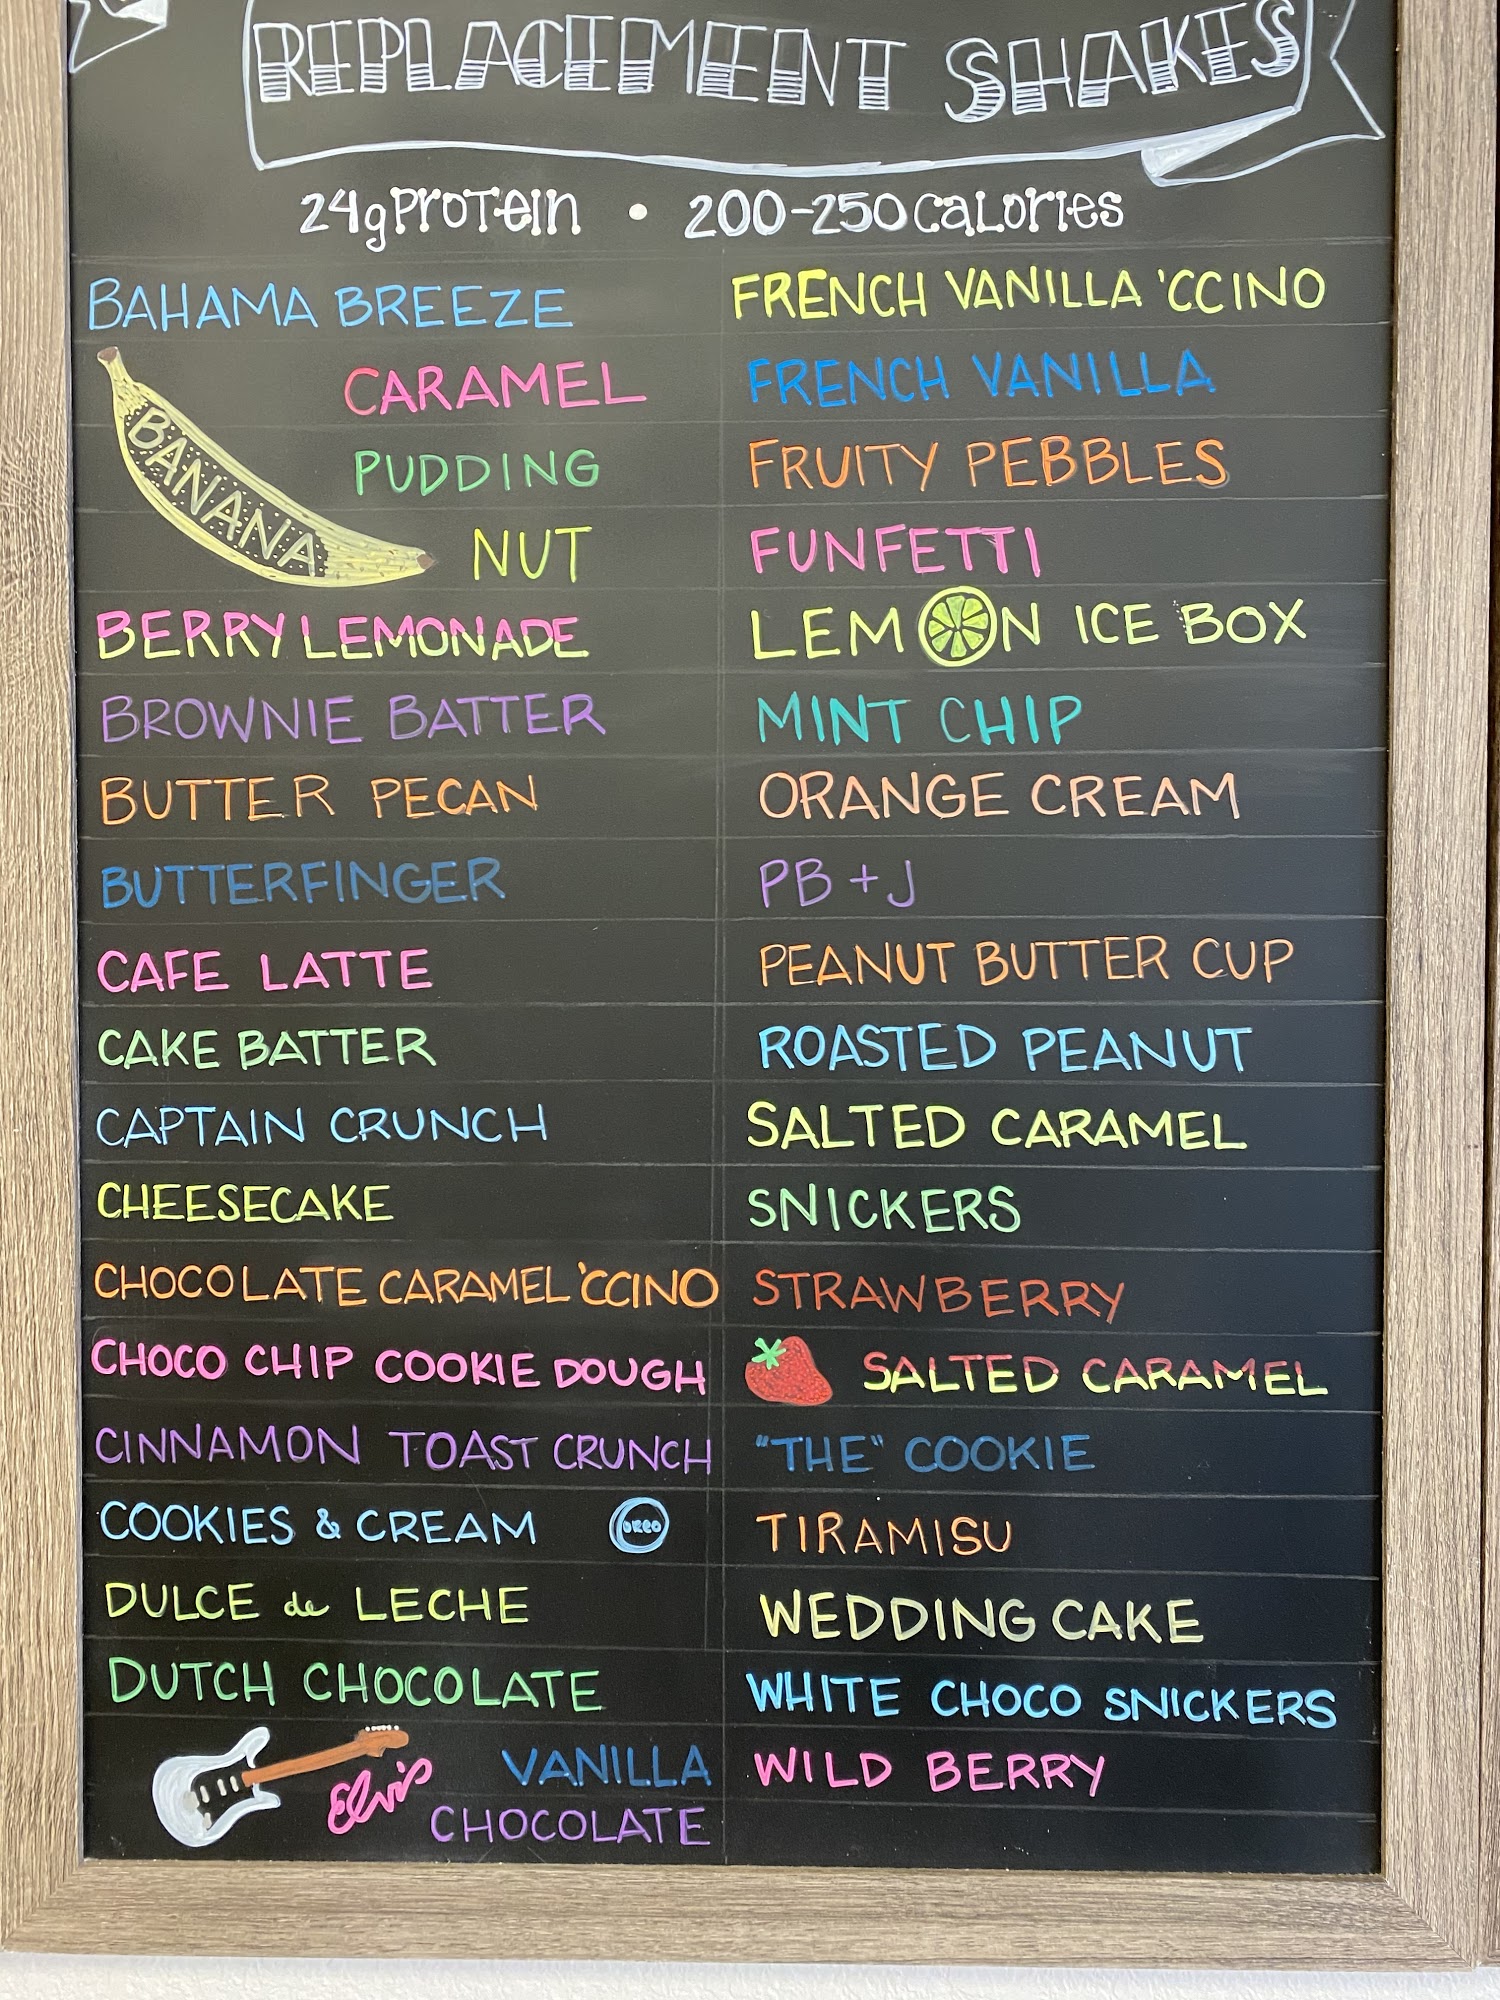 REPLACEMENT SHAKES
24g PROTEIN • 200-250 CALORIES
BAHAMA BREEZE
BANANA
CARAMEL
PUDDING
NUT
BERRY LEMONADE
BROWNIE BATTER
BUTTER PECAN
BUTTERFINGER
CAFE LATTE
CAKE BATTER
CAPTAIN CRUNCH
CHEESECAKE
CHOCOLATE CARAMEL 'CCINO
CHOCO CHIP COOKIE DOUGH
CINNAMON TOAST CRUNCH
COOKIES & CREAM OREO
DULCE de LECHE
DUTCH CHOCOLATE
Elvis VANILLA
CHOCOLATE
FRENCH VANILLA 'CCINO
FRENCH VANILLA
FRUITY PEBBLES
FUNFETTI
LEMON ICE BOX
MINT CHIP
ORANGE CREAM
PB + J
PEANUT BUTTER CUP
ROASTED PEANUT
SALTED CARAMEL
SNICKERS
STRAWBERRY
SALTED CARAMEL
"THE" COOKIE
TIRAMISU
WEDDING CAKE
WHITE CHOCO SNICKERS
WILD BERRY